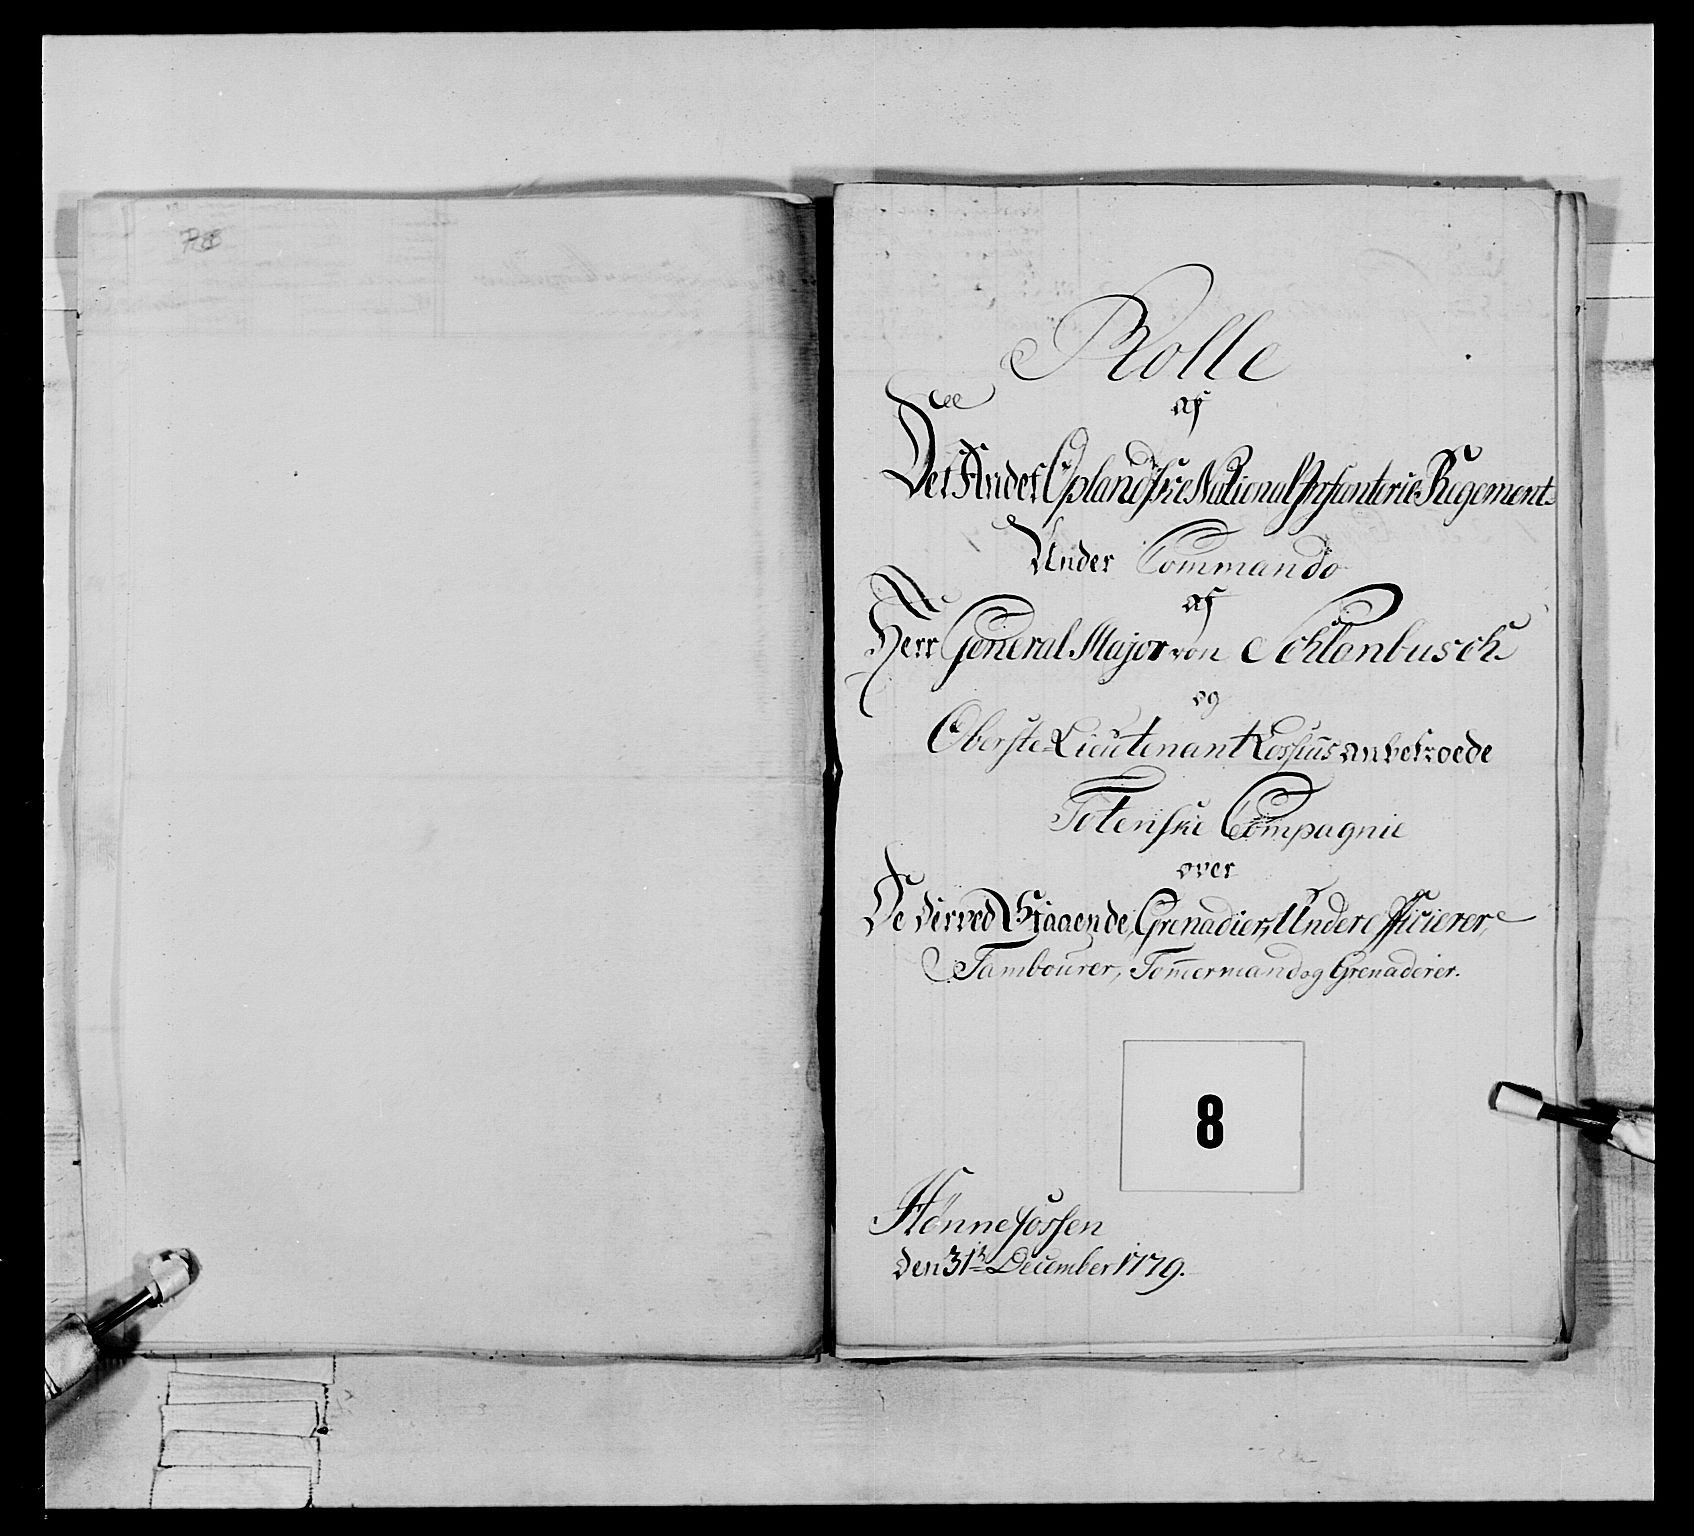 Rolle
af
Det Andet Oplandske National Infanterie Regement
Under Commando
af
Herr General Major von Schlanbusch
og
Oberste Lieutenant Rossius anbetroede
Totenske Compagnie
over
De derved Staaende, Grenadier, Underofficierer,
Tambourer, Tom̅ermand og Grenaderer.
8
Hønnefossen
den 31te December 1779.